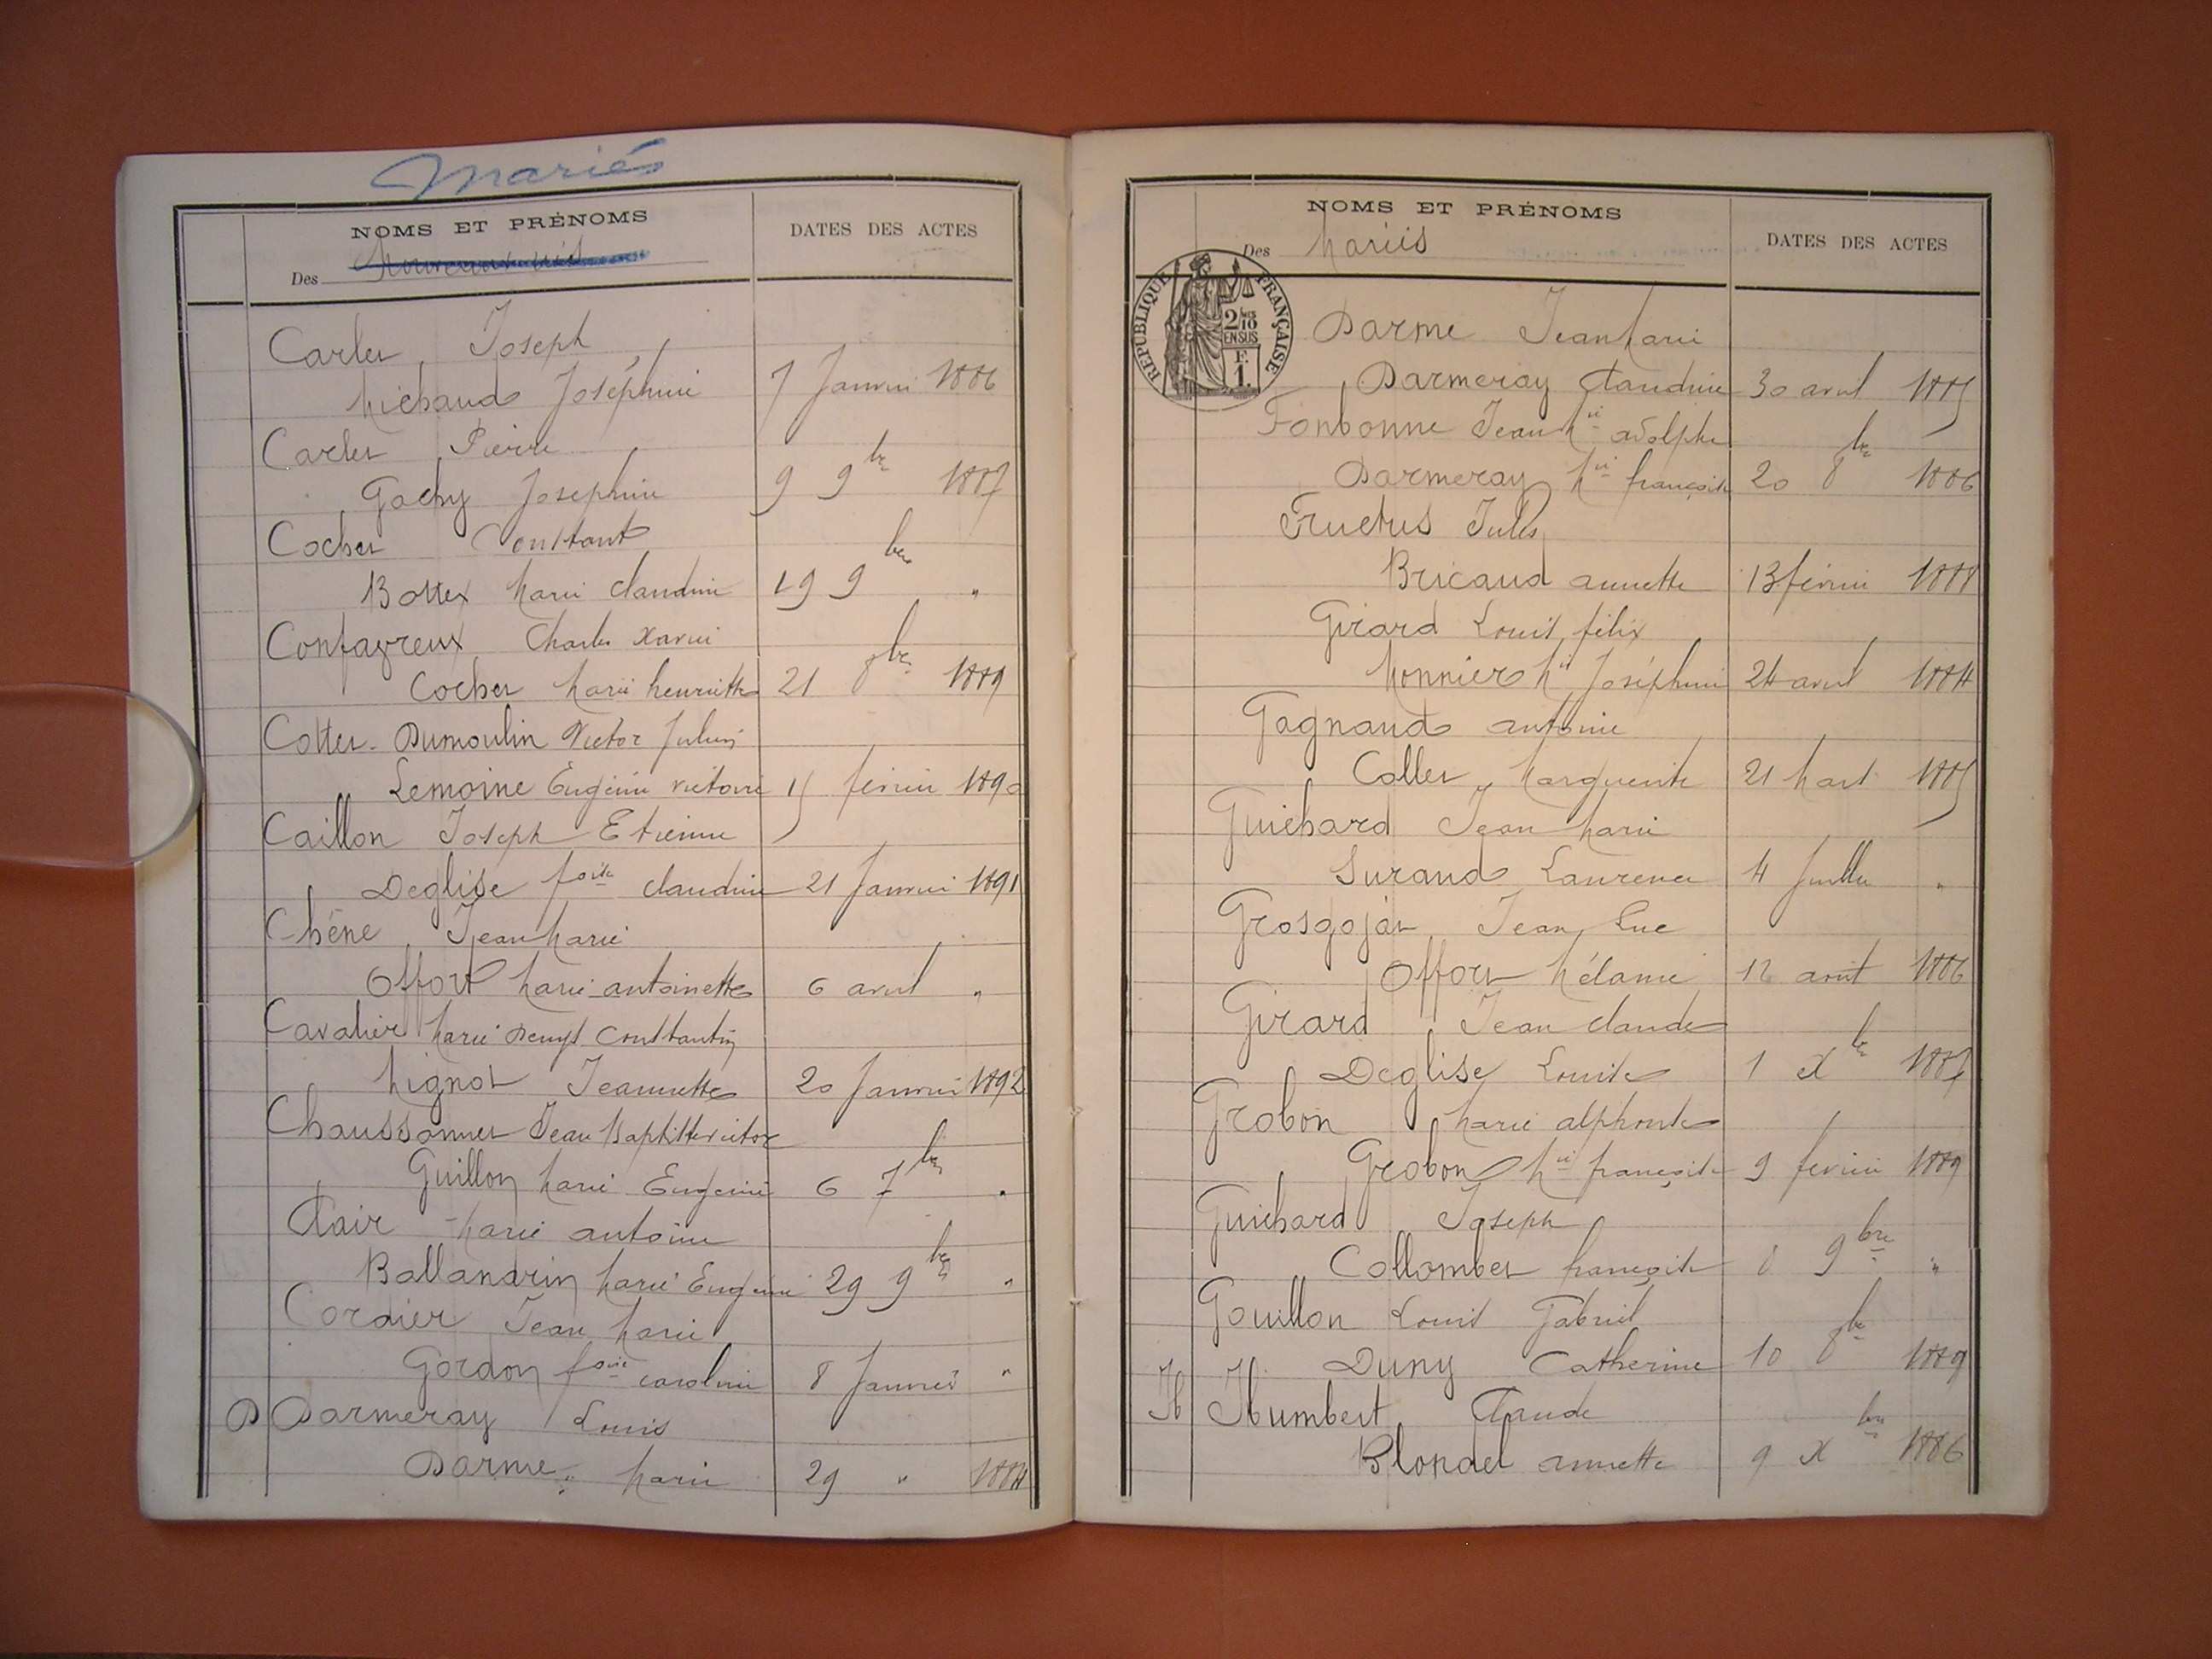 Mariés
NOMS ET PRÉNOMS
DATES DES ACTES
Des
Carlet Joseph
Michaud Joséphine 7 Janvier 1886
Carlet Pierre
Gachy Josephine 9 9bre 1887
Cochet Constant
Bottex Marie Claudine 19 9bre "
Confavreux Charles Xavier
Cochet Marie henriette 21 8bre 1889
Cottet-Dumoulin Victor Julien
Lemoine Eugénie victoire 15 février 1890
Caillon Joseph Etienne
Deglise foise claudine 21 Janvier 1891
Chêne Jean Marie
Offort Marie antoinette 6 avril "
Cavalier Marie Denys Constantin
Mignot Jeannette 20 Janvier 1892
Chaussonnet Jean Baptiste victor
Guillon Marie Eugénie 6 7bre "
Clair Marie antoine
Ballandrin Marie Eugénie 29 9bre "
Cordier Jean Marie
Gordon foise caroline 8 Janvier "
D Darmeray Louis
Darme Marie 29 " 1884
NOMS ET PRÉNOMS
DATES DES ACTES
Des Mariés
RÉPUBLIQUE FRANÇAISE
2/10 EN SUS
F. 1.
Darme Jean Marie
Darmeray Claudine 30 avril 1885
Fonbonne Jean Mie adolphe
Darmeray Mie françoise 20 8bre 1886
Fructus Jules
Bricaud annette 13 février 1888
Girard Louis félix
Monnier Mie Joséphine 24 avril 1884
Gagnaud antoine
Collet Marguerite 21 Mars 1885
Guichard Jean Marie
Surand Laurence 4 Juillet "
Grosgojat Jean Luc
Offort Mélanie 12 août 1886
Girard Jean Claude
Deglise Louise 1 Xbre 1887
Grobon Marie alphonse
Grobon Mie françoise 9 fevrier 1889
Guichard Joseph
Collombet françoise 8 9bre "
Gouillon Louis Gabriel
Duny Catherine 10 8bre 1889
H Humbert Claude
Blondel annette 9 Xbre 1886